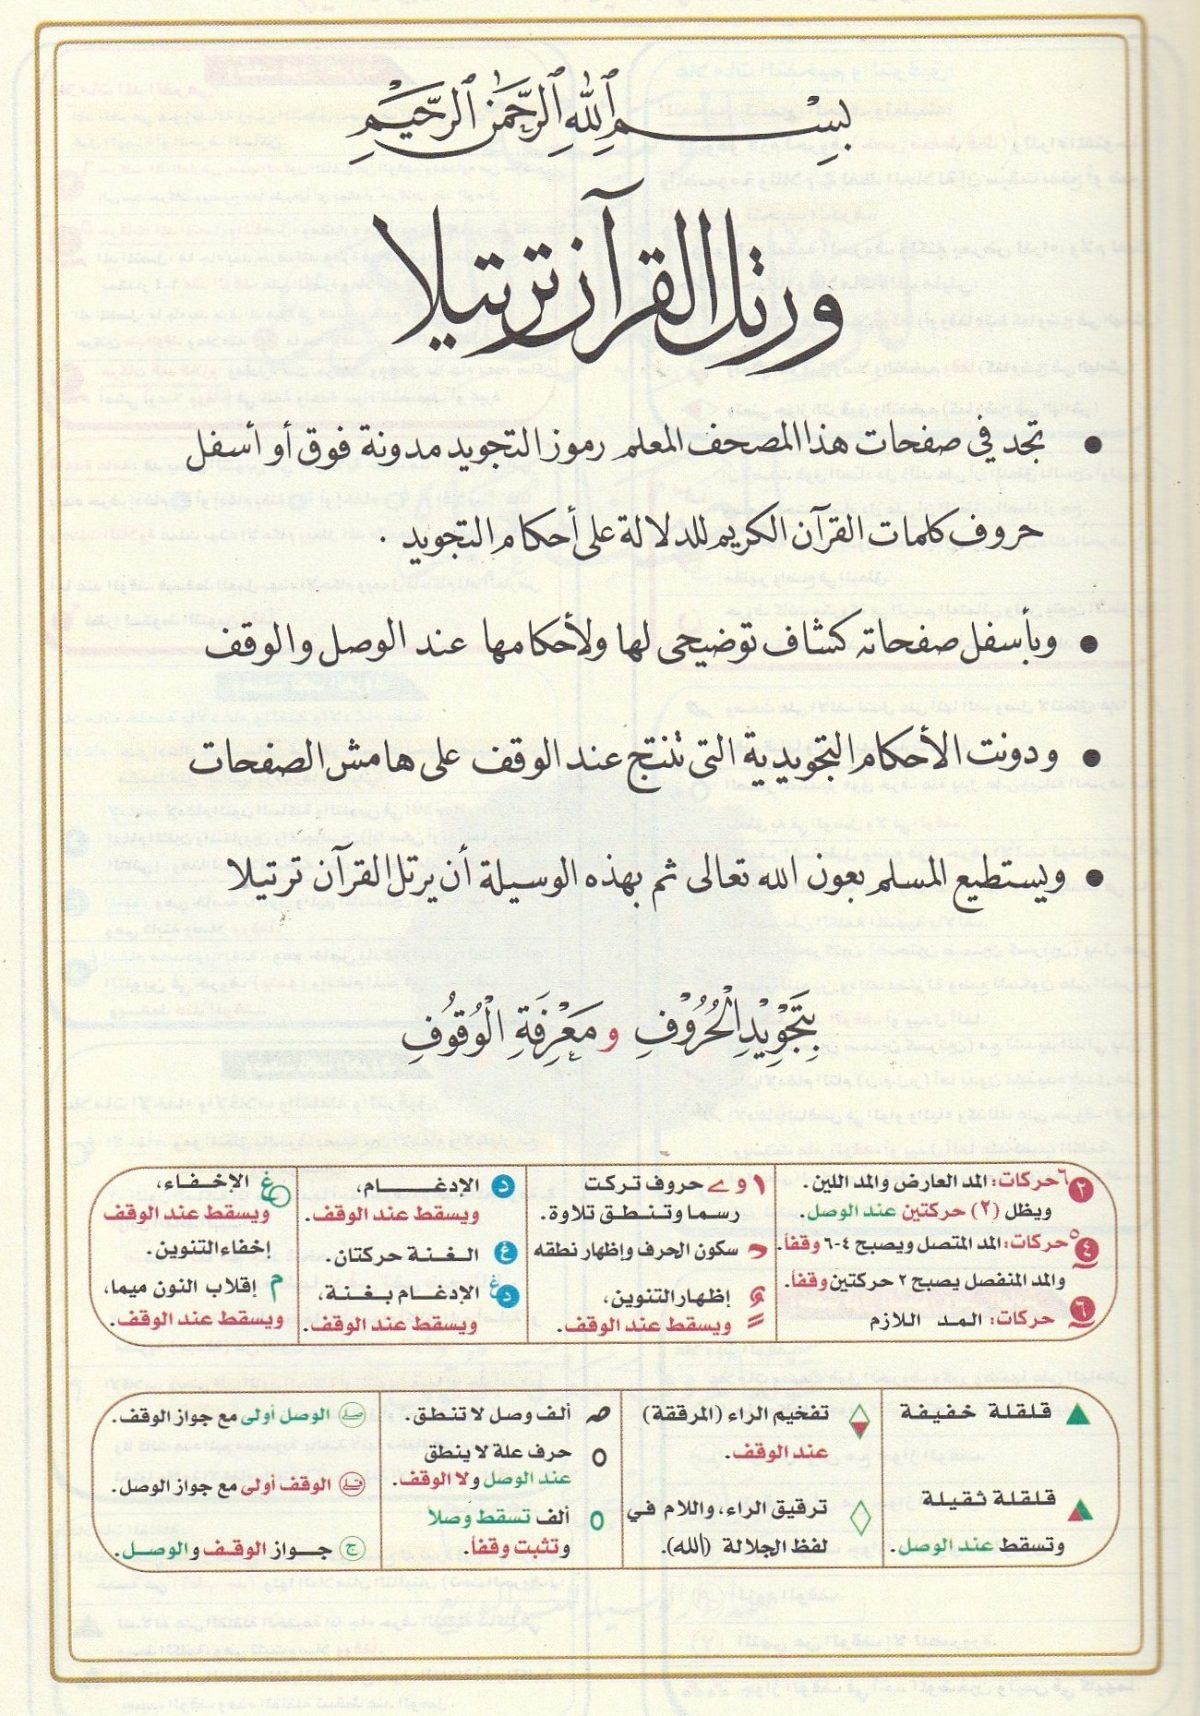 بِسْمِ اللَّهِ الرَّحْمَٰنِ الرَّحِيمِ
ورتل القرآن ترتيلا
• تجد في صفحات هذا المصحف المعلم رموز التجويد مدونة فوق أو أسفل
حروف كلمات القرآن الكريم للدلالة على أحكام التجويد .
• وبأسفل صفحاته كشاف توضيحى لها ولأحكامها عند الوصل والوقف
• ودونت الأحكام التجويدية التى تنتج عند الوقف على هامش الصفحات
• ويستطيع المسلم بعون الله تعالى ثم بهذه الوسيلة أن يرتل القرآن ترتيلا
بِتَجْوِيْدِ الْحُرُوْفِ و مَعْرِفَةِ الْوُقُوُفِ
٢ ٦ حركات: المد العارض والمد اللين.
ويظل (٢) حركتين عند الوصل.
٤ ٥ حركات: المد المتصل ويصبح ٤-٦ وقفاً.
والمد المنفصل يصبح ٢ حركتين وقفاً.
٦ حركات: المد اللازم
ا و ے حروف تركت
رسما وتنطق تلاوة.
سكون الحرف وإظهار نطقه
إظهار التنوين،
ويسقط عند الوقف.
د الإدغــام،
ويسقط عند الوقف.
غ الغنة حركتان.
د غ الإدغام بغنة،
ويسقط عند الوقف.
غ الإخفاء،
ويسقط عند الوقف
إخفاء التنوين.
م إقلاب النون ميما،
ويسقط عند الوقف.
قلقلة خفيفة
قلقلة ثقيلة
وتسقط عند الوصل.
تفخيم الراء (المرققة)
عند الوقف.
ترقيق الراء، واللام في
لفظ الجلالة (الله).
ص ألف وصل لا تنطق.
حرف علة لا ينطق
عند الوصل ولا الوقف.
ألف تسقط وصلاً
وتثبت وقفاً.
صلے الوصل أولى مع جواز الوقف.
قلے الوقف أولى مع جواز الوصل.
ج جــواز الوقــف والوصــل.